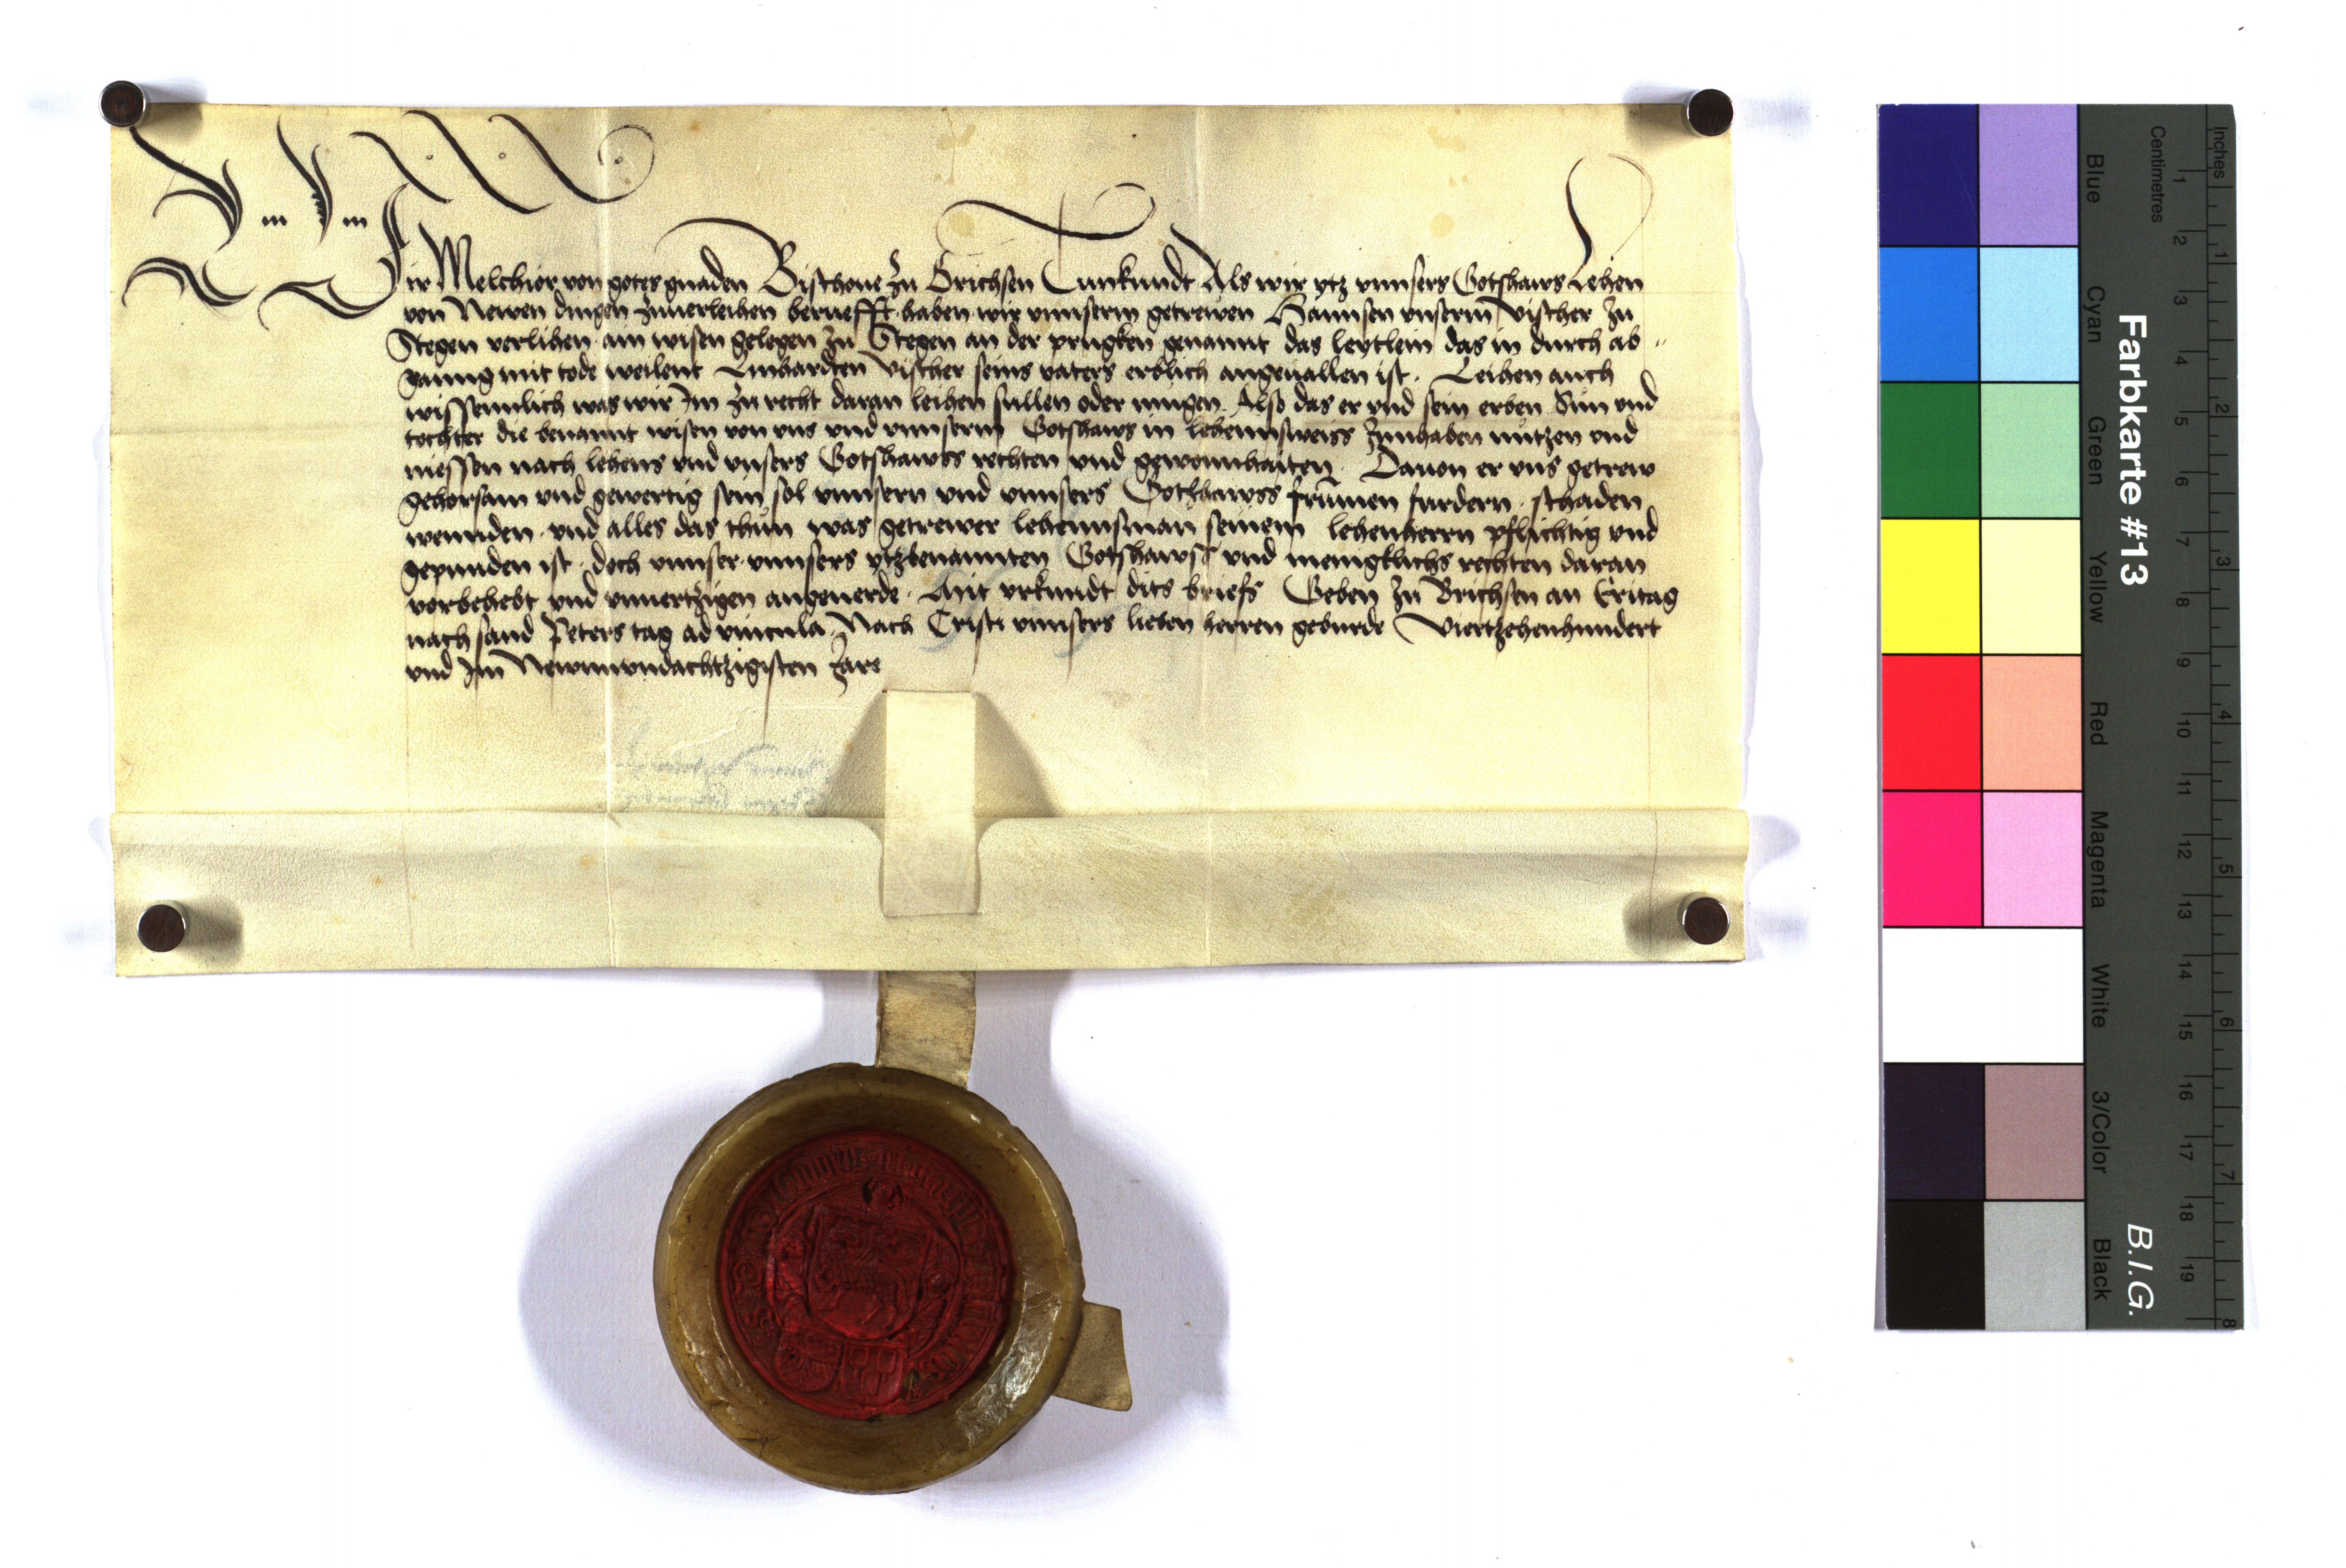 Wir Melchior von gotes gnaden Bischoue zu Brichsen Tun kundt Als wir ytz vnnsers Gotshaws Lehen
von Newen dingen zuuerleihen beruefft haben wir vnnserm getrewen Hannsen vnserm Vischer zu
Stegen verlihen ain wisen gelegen zu Stegen an der prugken genannt das leytlein das in durch ab„
ganng mit tode weilent Linhardten Vischer seins vaters erblich angeuallen ist. Leihen auch
wissenntlich was wir Im zu recht daran leihen sullen oder mugen. Also das er vnd sein erben Sün vnd
tochter die benannt wisen von vns vnd vnnserm Gotshaws in lehennsweiss Innhaben nützen vnd
niessen nach lehens vnd vnsers Gotshawss rechten vnd gewonnhaiten. Dauon er vns getrew
gehorsam vnd gewertig sein sol vnnsern vnd vnnsers Gotshawss frümen furdern. schaden
wennden. vnd alles das thün was getrewer lehennsman seinem lehenherrn pflichtig vnd
gepunden ist. doch vnnser. vnnsers ytzbenannten Gotshawss vnd menigklichs rechten daran
vorbehebt vnd vnuertzigen angeuerde. Mit vrkundt dits briefs Geben zu Brichsen an Eritag
nach sand Peters tag ad vincula. Nach Cristi vnnsers lieben herren geburde Viertzehenhundert
vnd Im Newnvndachtzigisten Jare
Farbkarte #13
B.I.G.
Inches
Centimetres
1 2 3 4 5 6 7 8 9 10 11 12 13 14 15 16 17 18 19
1 2 3 4 5 6 7 8
Blue
Cyan
Green
Yellow
Red
Magenta
White
3/Color
Black